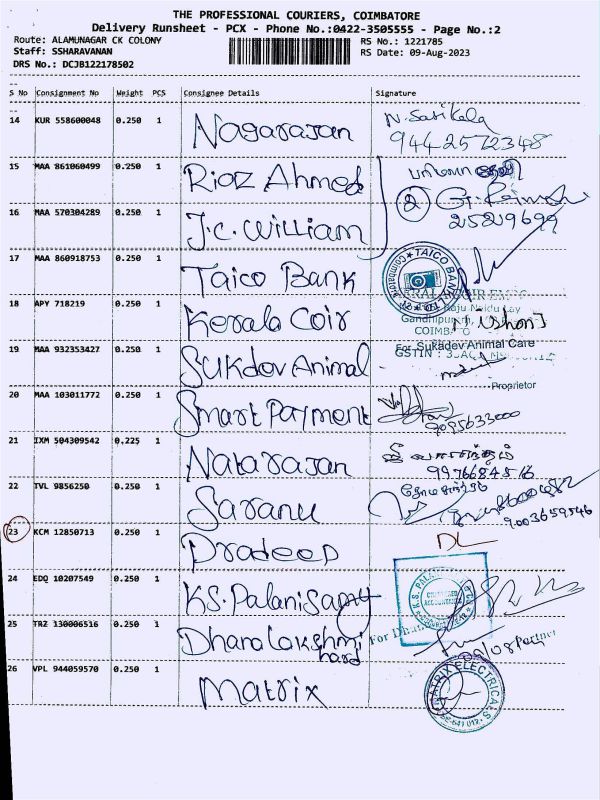 THE PROFESSIONAL COURIERS, COIMBATORE
Delivery Runsheet - PCX - Phone No.:0422-3505555 - Page No.:2
Route: ALAMUNAGAR CK COLONY RS No.: 1221785
Staff: SSHARAVANAN RS Date: 09-Aug-2023
DRS No.: DCJB122178502
S No Consignment No Weight PCS Consignee Details Signature
14 KUR 558600048 0.250 1 Nagarajan N. Sasikala
9442572348
15 MAA 861060499 0.250 1 Riaz Ahmed
16 MAA 570304289 0.250 1 J.C. William 2
2529699
17 MAA 860918753 0.250 1 Taico Bank TAICO BANK Coimbatore
18 APY 718219 0.250 1 Kerala Coir
COIMB
19 MAA 932353427 0.250 1 Sukdev Animal For Sukadev Animal Care
GSTIN :
Proprietor
20 MAA 103011772 0.250 1 Smart Payment
9095633000
21 IXM 504309542 0.225 1 Natarajan
9976684516
22 TVL 9856250 0.250 1 Saranu
9003659546
23 KCM 12850713 0.250 1 Pradeep DL
24 EDQ 10207549 0.250 1 K.S. Palanisamy K.S. PALANI
CHARTERED ACCOUNTANT
25 TRZ 130006516 0.250 1 Dhanalakshmi For
hard Partner
26 VPL 944059570 0.250 1 Matrix MATRIX ELECTRICALS